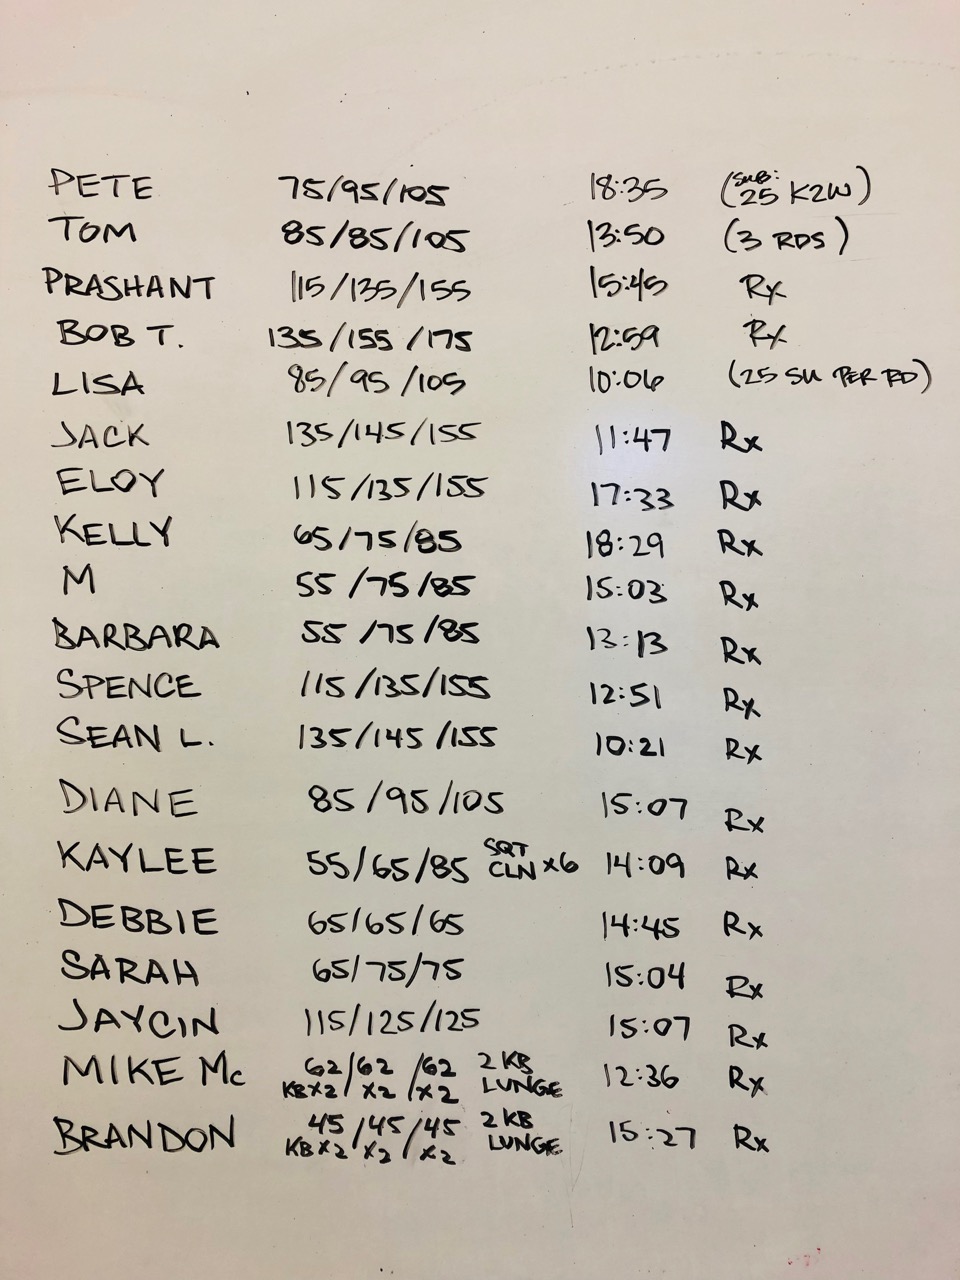 PETE 75/95/105 18:35 (SUB: 25 K2W)
TOM 85/85/105 13:50 (3 RDS)
PRASHANT 115/135/155 15:45 Rx
BOB T. 135/155/175 12:59 Rx
LISA 85/95/105 10:06 (25 SU PER RD)
JACK 135/145/155 11:47 Rx
ELOY 115/135/155 17:33 Rx
KELLY 65/75/85 18:29 Rx
M 55/75/85 15:03 Rx
BARBARA 55/75/85 13:13 Rx
SPENCE 115/135/155 12:51 Rx
SEAN L. 135/145/155 10:21 Rx
DIANE 85/95/105 15:07 Rx
KAYLEE 55/65/85 SQT CLN x6 14:09 Rx
DEBBIE 65/65/65 14:45 Rx
SARAH 65/75/75 15:04 Rx
JAYCIN 115/125/125 15:07 Rx
MIKE Mc 62/62/62 2 KB 12:36 Rx
KBx2 x2 x2 LUNGE
BRANDON 45/45/45 2 KB 15:27 Rx
KBx2 x2 x2 LUNGE